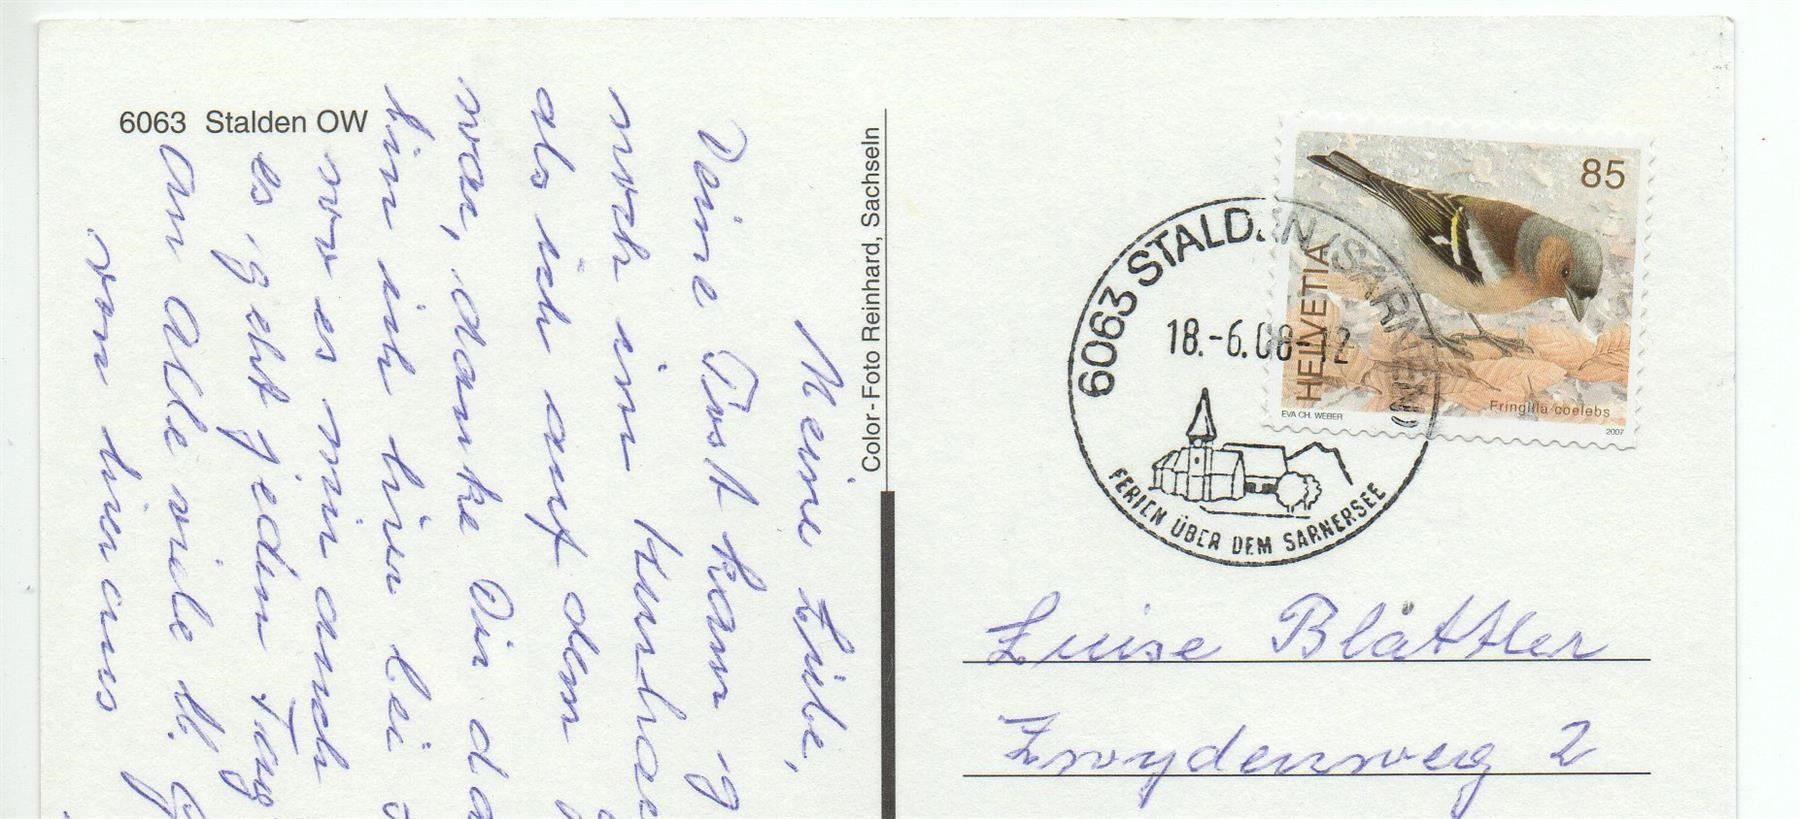 6063 Stalden OW
Meine Liebe,
Deine Post kam
noch im
als ich auf dem
war, danke Dir
bin ich hier bei
wo es mir auch
es geht jeden Tag
An Alle viele
von hier aus
Color-Foto Reinhard, Sachseln
85
HELVETIA
EVA CH. WEBER
Fringilla coelebs
2007
6063 STALDEN (SARNEN)
18.-6.08-12
FERIEN ÜBER DEM SARNERSEE
Luise Blättler
Zwydenweg 2